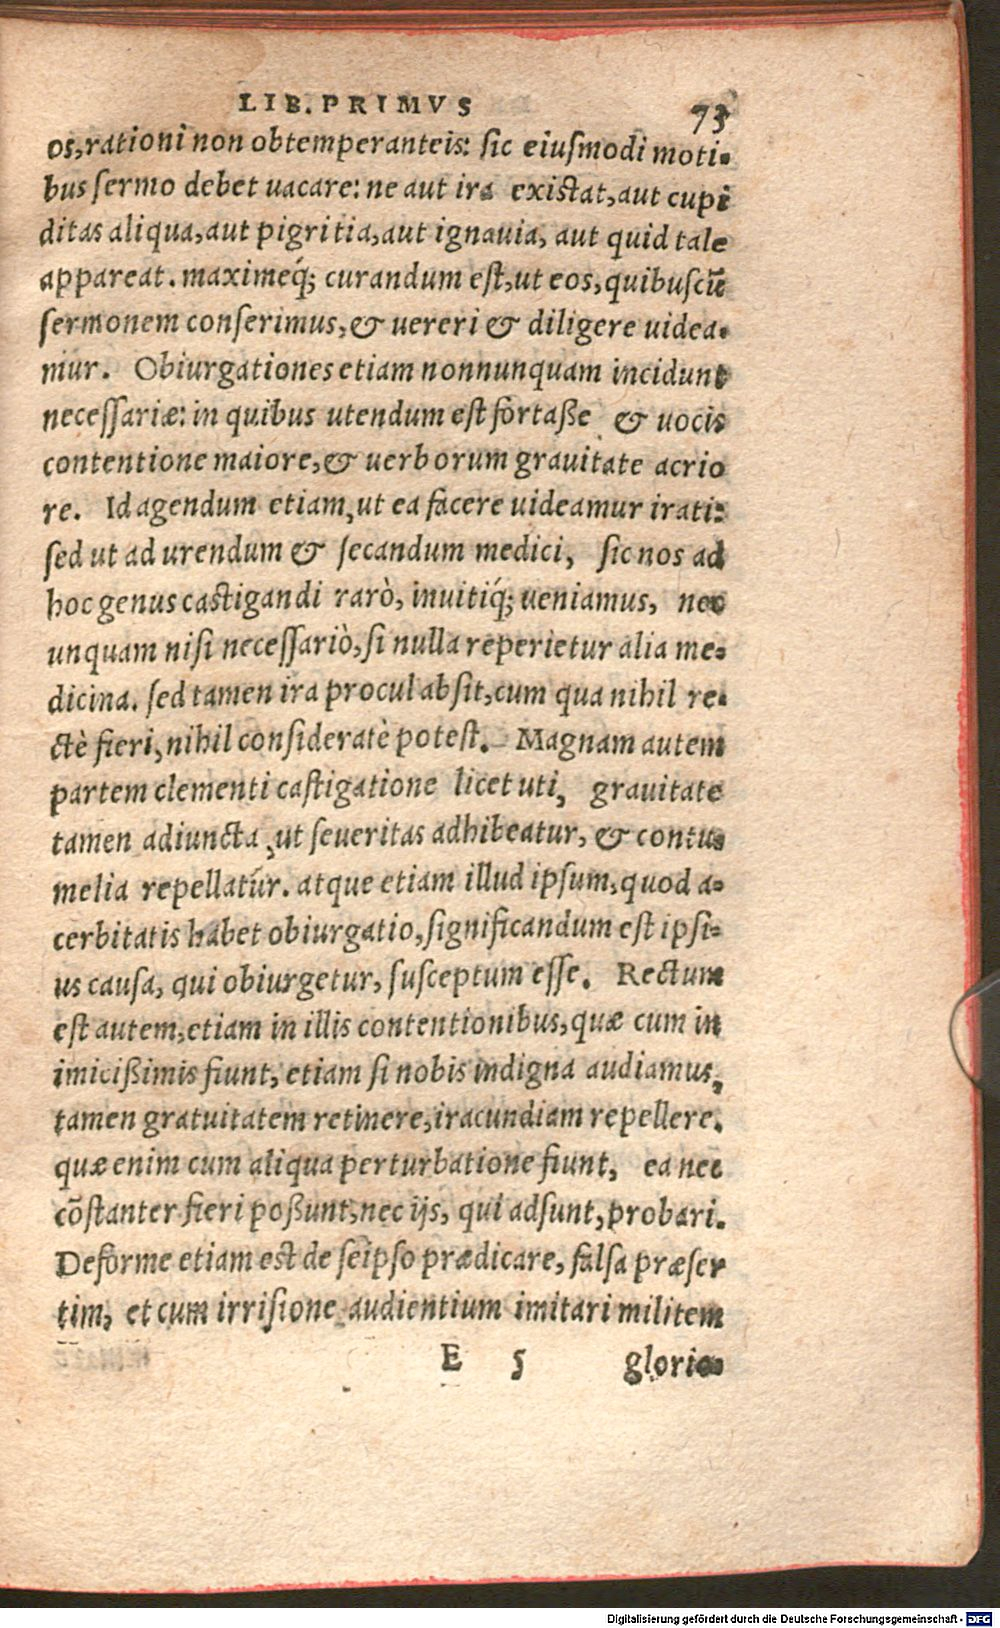 LIB. PRIMVS 73
os, rationi non obtemperanteis: sic eiusmodi moti-
bus sermo debet uacare: ne aut ira existat, aut cupi
ditas aliqua, aut pigritia, aut ignauia, aut quid tale
appareat. maximeq́; curandum est, ut eos, quibuscũ
sermonem conserimus, & uereri & diligere uidea-
mur. Obiurgationes etiam nonnunquam incidunt
necessariæ: in quibus utendum est fortaße & uocis
contentione maiore, & uerborum grauitate acrio
re. Id agendum etiam, ut ea facere uideamur irati:
sed ut ad urendum & secandum medici, sic nos ad
hoc genus castigandi rarò, inuitiq́; ueniamus, nec
unquam nisi necessariò, si nulla reperietur alia me-
dicina. sed tamen ira procul absit, cum qua nihil re-
ctè fieri, nihil consideratè potest. Magnam autem
partem clementi castigatione licet uti, grauitate
tamen adiuncta, ut seueritas adhibeatur, & contu-
melia repellatur. atque etiam illud ipsum, quod a-
cerbitatis habet obiurgatio, significandum est ipsi-
us causa, qui obiurgetur, susceptum esse. Rectum
est autem, etiam in illis contentionibus, quæ cum in
imicißimis fiunt, etiam si nobis indigna audiamus,
tamen gratuitatem retinere, iracundiam repellere.
quæ enim cum aliqua perturbatione fiunt, ea nec
cõstanter fieri poßunt, nec ijs, qui adsunt, probari.
Deforme etiam est de seipso prædicare, falsa præser
tim, et cum irrisione audientium imitari militem
E 5 glorio-
Digitalisierung gefördert durch die Deutsche Forschungsgemeinschaft - DFG